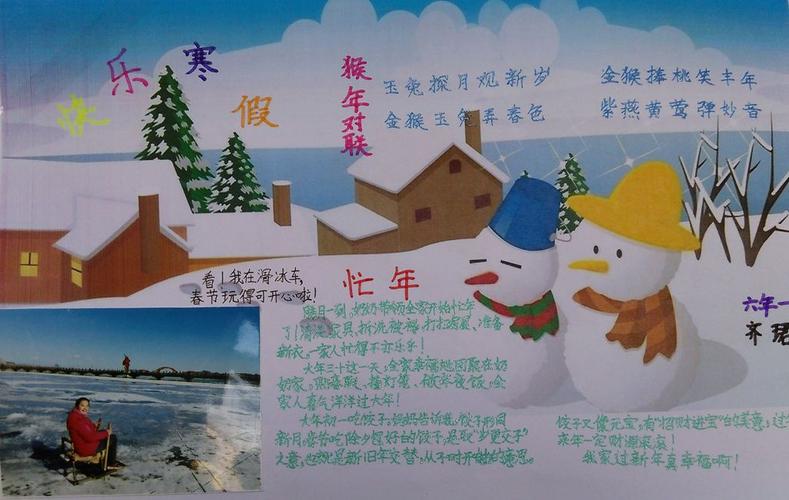 快乐寒假
猴年对联
玉兔探月观新岁
金猴玉兔弄春色
金猴捧桃笑丰年
紫燕黄莺弹妙音
看！我在滑冰车，
春节玩得可开心啦！
忙年
腊月一到，奶奶带领全家开始忙年
了！清洗家具、拆洗被褥、打扫房屋、准备
新衣。一家人忙得不亦乐乎！
大年三十这一天，全家幸福地团聚在奶
奶家。贴春联、挂灯笼、做年夜饭，全
家人喜气洋洋过大年！
大年初一吃饺子，妈妈告诉我，饺子形同
新月，春节吃除夕包好的饺子，是取“岁更交子”
之意，也就是新旧年交替，从子时开始的意思。
饺子又像元宝，有“招财进宝”的美意，过
来年一定财源滚滚！
我家过新年真幸福啊！
六年一
齐珺